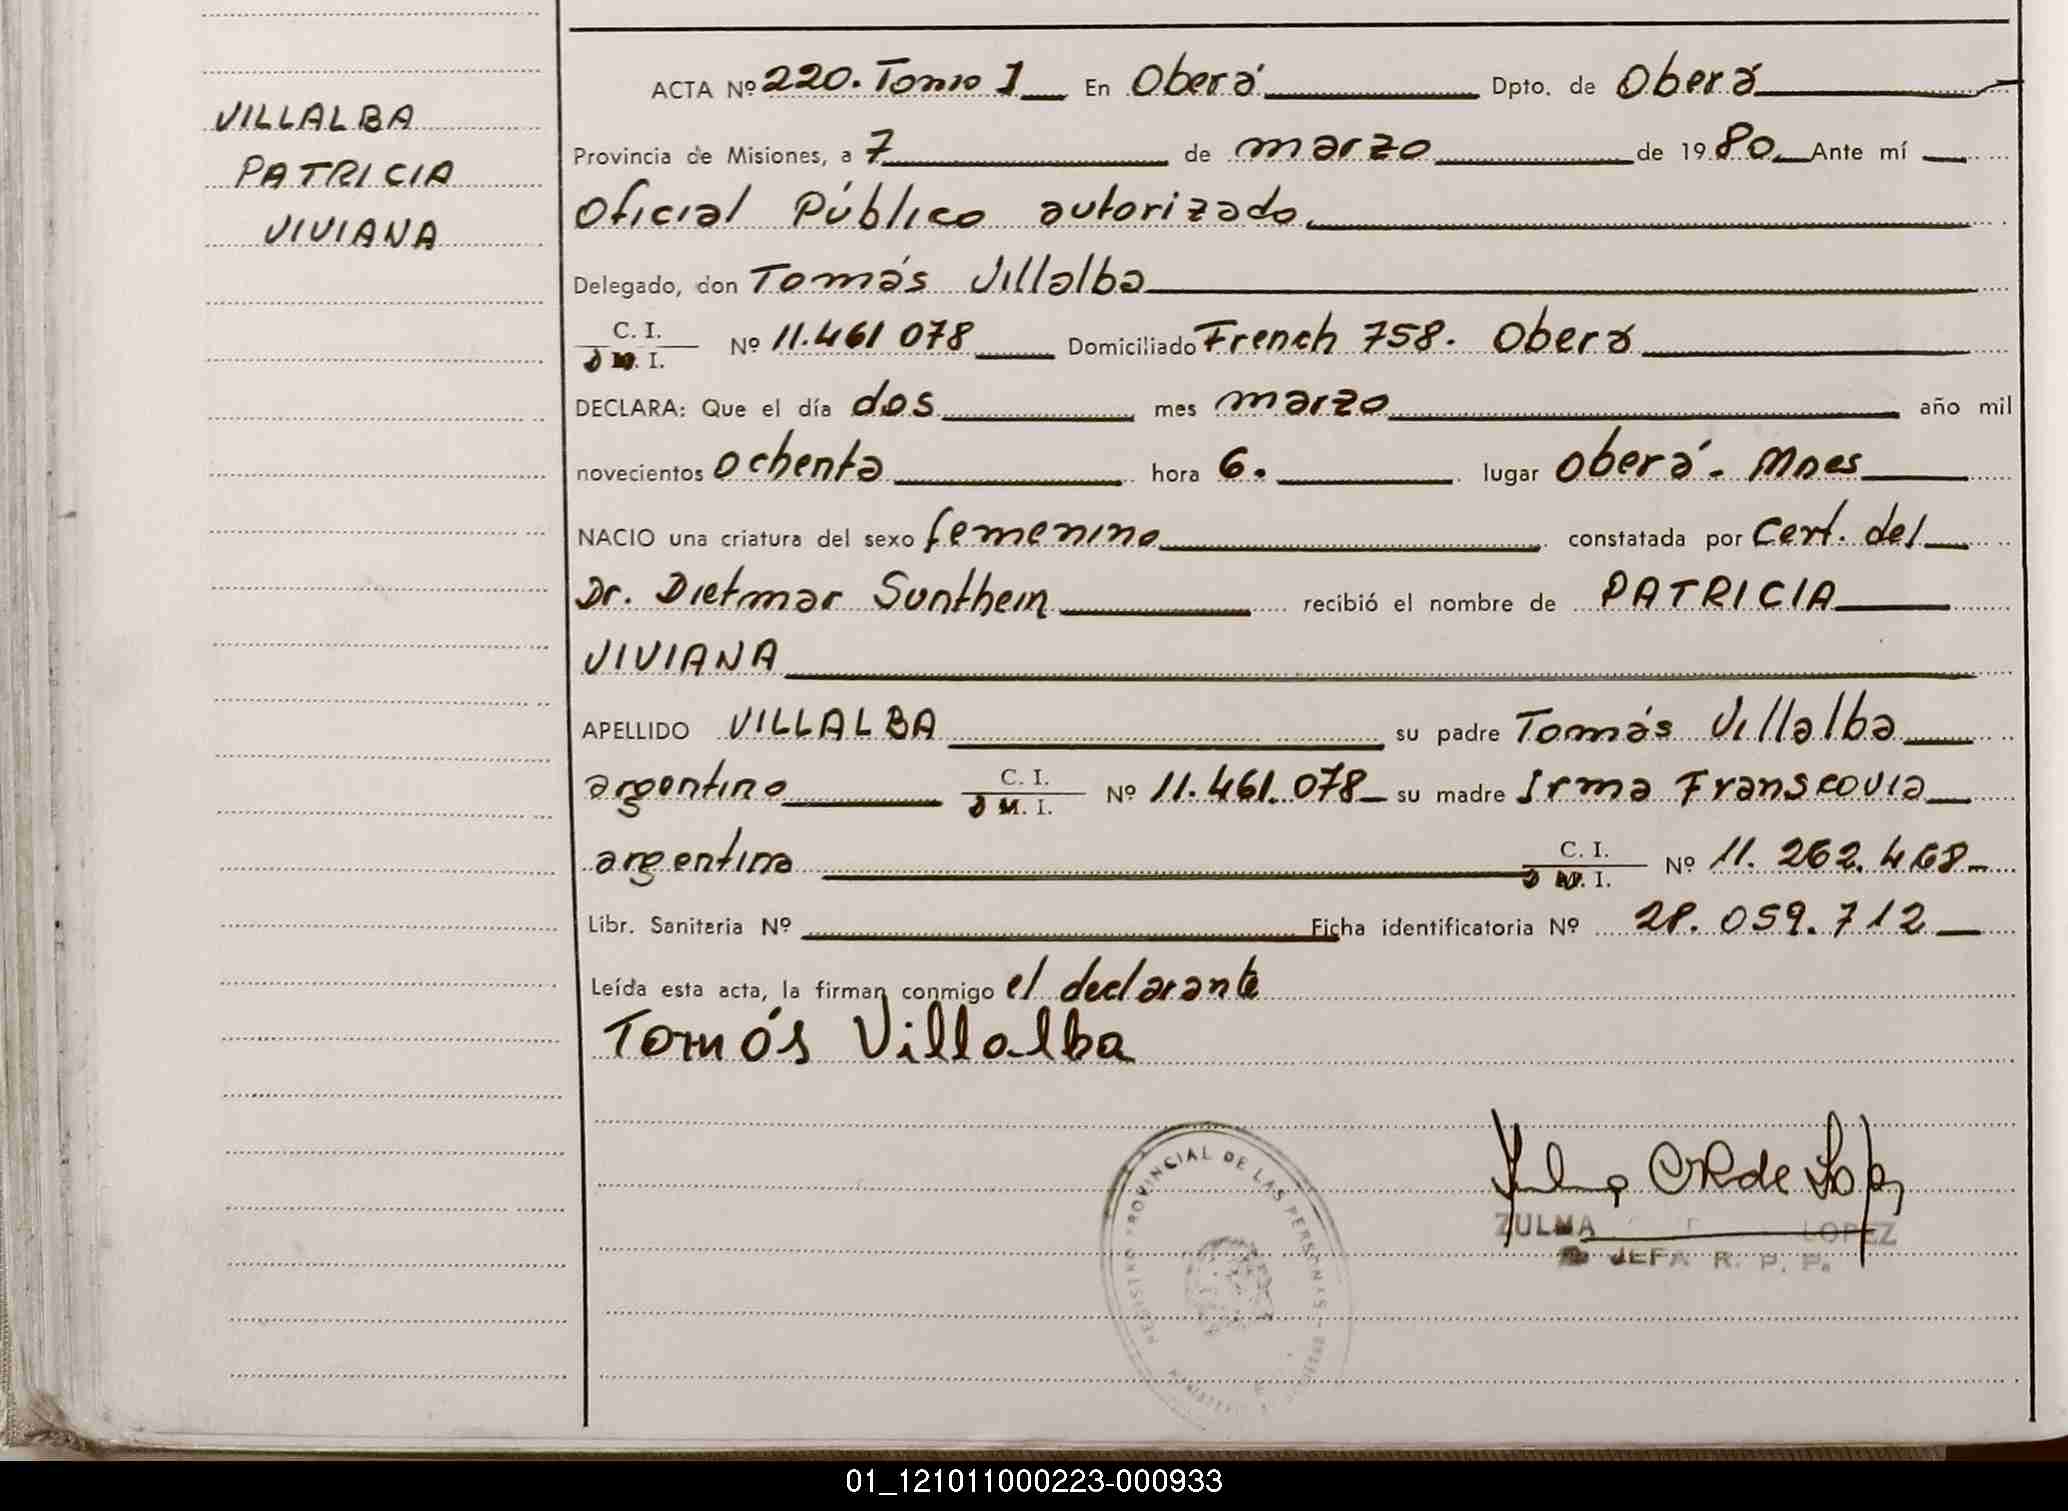 VILLALBA
PATRICIA
VIVIANA
ACTA Nº 220. Tomo 1 En Oberá Dpto. de Oberá
Provincia de Misiones, a 7 de marzo de 1980 Ante mí
Oficial Público autorizado
Delegado, don Tomás Villalba
C. I.
D N. I. Nº 11.461 078 Domiciliado French 758. Oberá
DECLARA: Que el día dos mes marzo año mil
novecientos ochenta hora 6. lugar Oberá. Mnes
NACIO una criatura del sexo femenino constatada por Cert. del
Dr. Dietmar Sunthein recibió el nombre de PATRICIA
VIVIANA
APELLIDO VILLALBA su padre Tomás Villalba
argentino C. I.
D M. I. Nº 11.461.078 su madre Irma Franscovia
argentina C. I.
D N. I. Nº 11.262.468
Libr. Sanitaria Nº Ficha identificatoria Nº 28.059.712
Leída esta acta, la firman conmigo el declarante
Tomás Villalba
REGISTRO PROVINCIAL DE LAS PERSONAS
ZULMA LOPEZ
JEFA R. P. P.
01_121011000223-000933